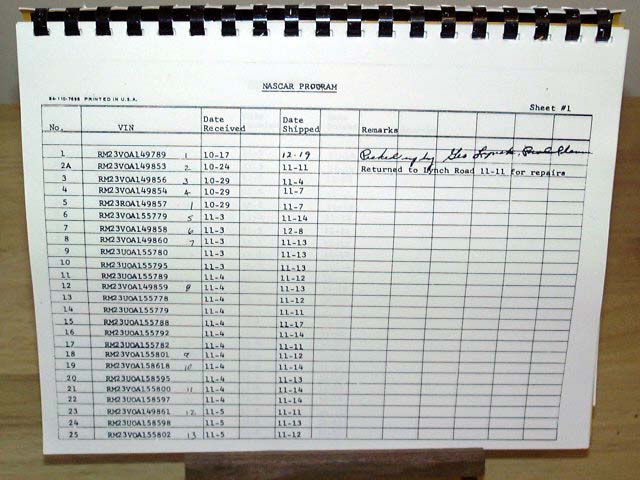 NASCAR PROGRAM
84-110-7698 PRINTED IN U.S.A.
Sheet #1
No. VIN Date Received Date Shipped Remarks
1 RM23V0A149789 1 10-17 12-19 Picked up by Geo Lynch
2A RM23V0A149853 2 10-24 11-11 Returned to Lynch Road 11-11 for repairs
3 RM23V0A149856 3 10-29 11-4
4 RM23V0A149854 4 10-29 11-7
5 RM23R0A149857 1 10-29 11-7
6 RM23V0A155779 5 11-3 11-14
7 RM23V0A149858 6 11-3 12-8
8 RM23V0A149860 7 11-3 11-13
9 RM23U0A155780 11-3 11-13
10 RM23U0A155795 11-3 11-13
11 RM23U0A155789 11-4 11-12
12 RM23V0A149859 8 11-4 11-13
13 RM23U0A155778 11-4 11-12
14 RM23U0A155779 11-4 11-11
15 RM23U0A155788 11-4 11-17
16 RM23U0A155792 11-4 11-14
17 RM23U0A155782 11-4 11-11
18 RM23V0A155801 9 11-4 11-12
19 RM23V0A158618 10 11-4 11-14
20 RM23U0A158595 11-4 11-13
21 RM23V0A155800 11 11-4 11-14
22 RM23U0A158597 11-4 11-14
23 RM23V0A149861 12 11-5 11-11
24 RM23U0A158598 11-5 11-13
25 RM23V0A155802 13 11-5 11-12